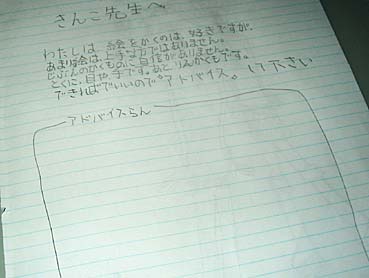 さんこ先生へ。
わたしは、お絵をかくのは、好きですが、
あまり絵は、上手ではありません。
じぶんのかくものに自信がありません。
とくに、目や手です。あと、りんかくもです。
できればでいいので、アドバイス。して下さい
アドバイスらん